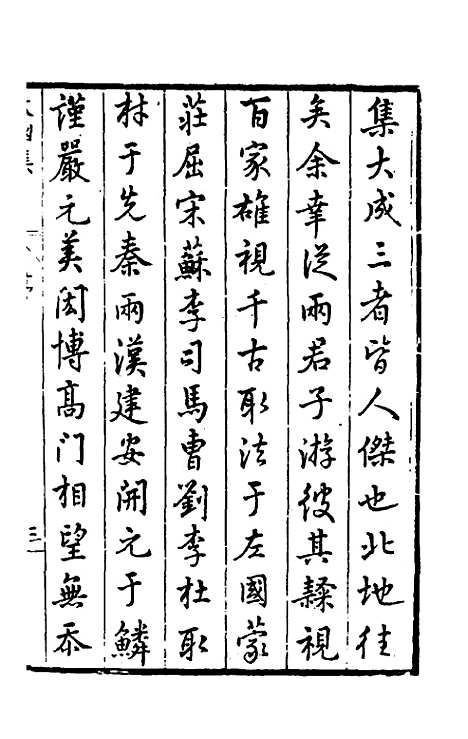 集大成三者皆人傑也北地往
矣余幸從兩君子游彼其隸視
百家雄視千古取法于左國蒙
莊屈宋蘇李司馬曹劉李杜取
材于先秦兩漢建安開元于鱗
謹嚴元美閎博高門相望無忝
三